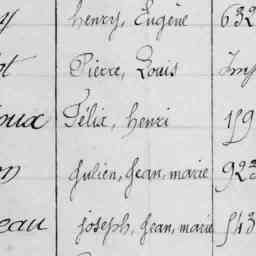 y henry, Eugène 632
ot Pierre, Louis Imp
oux Félix, henri 159
on Julien, Jean, marie 923
eau joseph, Jean, marie 543